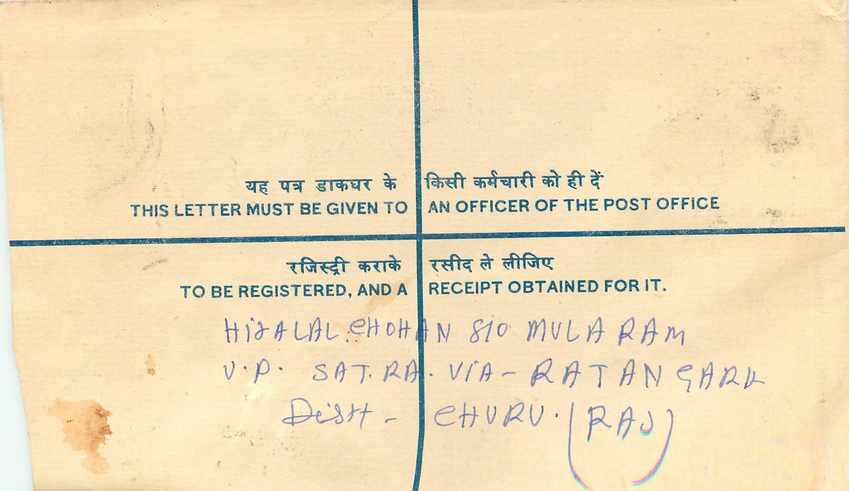 यह पत्र डाकघर के किसी कर्मचारी को ही दें
THIS LETTER MUST BE GIVEN TO AN OFFICER OF THE POST OFFICE
रजिस्ट्री कराके रसीद ले लीजिए
TO BE REGISTERED, AND A RECEIPT OBTAINED FOR IT.
CHOHAN S/O MULARAM
V.P. SAT.RA. VIA - RATANGARH
Distt - CHURU. (RAJ)